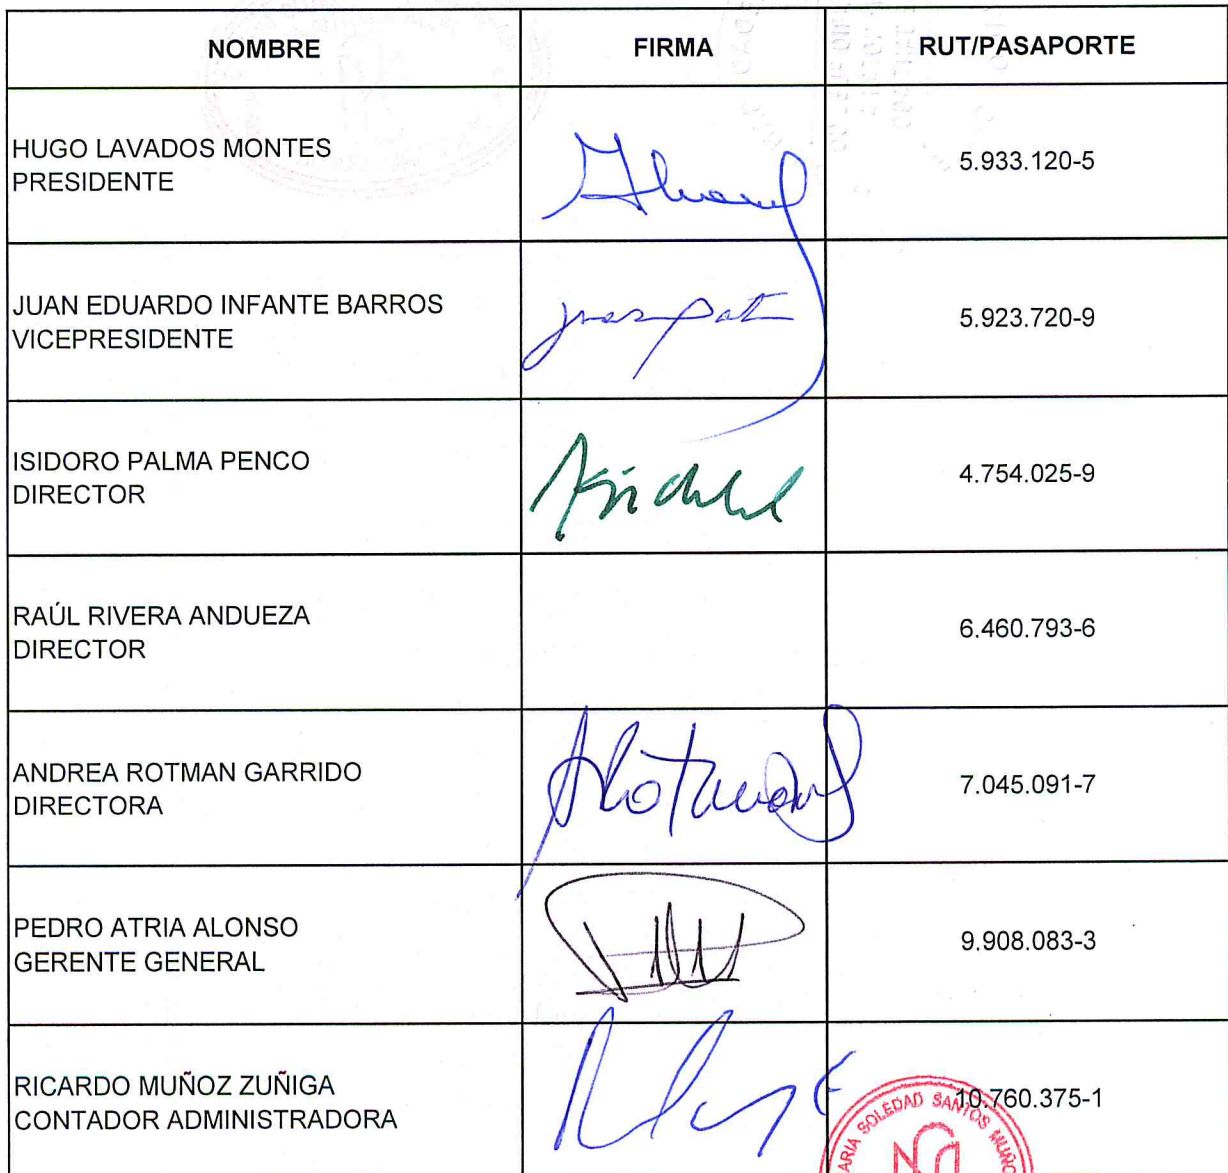 NOMBRE FIRMA RUT/PASAPORTE
HUGO LAVADOS MONTES
PRESIDENTE
5.933.120-5
JUAN EDUARDO INFANTE BARROS
VICEPRESIDENTE
5.923.720-9
ISIDORO PALMA PENCO
DIRECTOR
4.754.025-9
RAÚL RIVERA ANDUEZA
DIRECTOR
6.460.793-6
ANDREA ROTMAN GARRIDO
DIRECTORA
7.045.091-7
PEDRO ATRIA ALONSO
GERENTE GENERAL
9.908.083-3
RICARDO MUÑOZ ZUÑIGA
CONTADOR ADMINISTRADORA
10.760.375-1
MARIA SOLEDAD SANTOS MUÑOZ